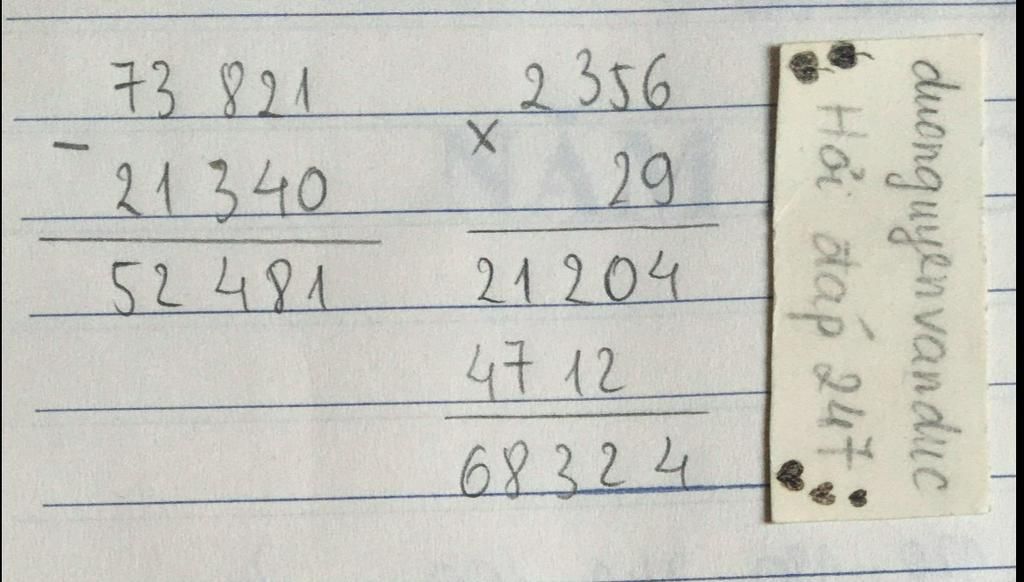 73 821
-
21 340
52 481
2 356
×
29
21 204
47 12
68 324
duonguyenvanduc
Hỏi đáp 247